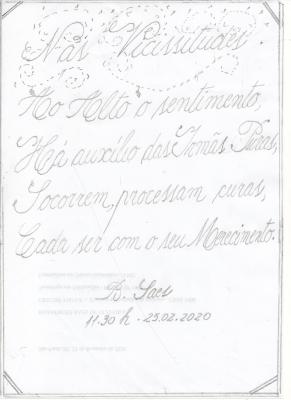 Nas Vicissitudes
Ho Alto o sentimento,
Há auxílio das Irmãs Puras,
Socorrem, processam curas,
Cada ser com o seu Merecimento.
A. Saes
11.30 h - 25.02.2020